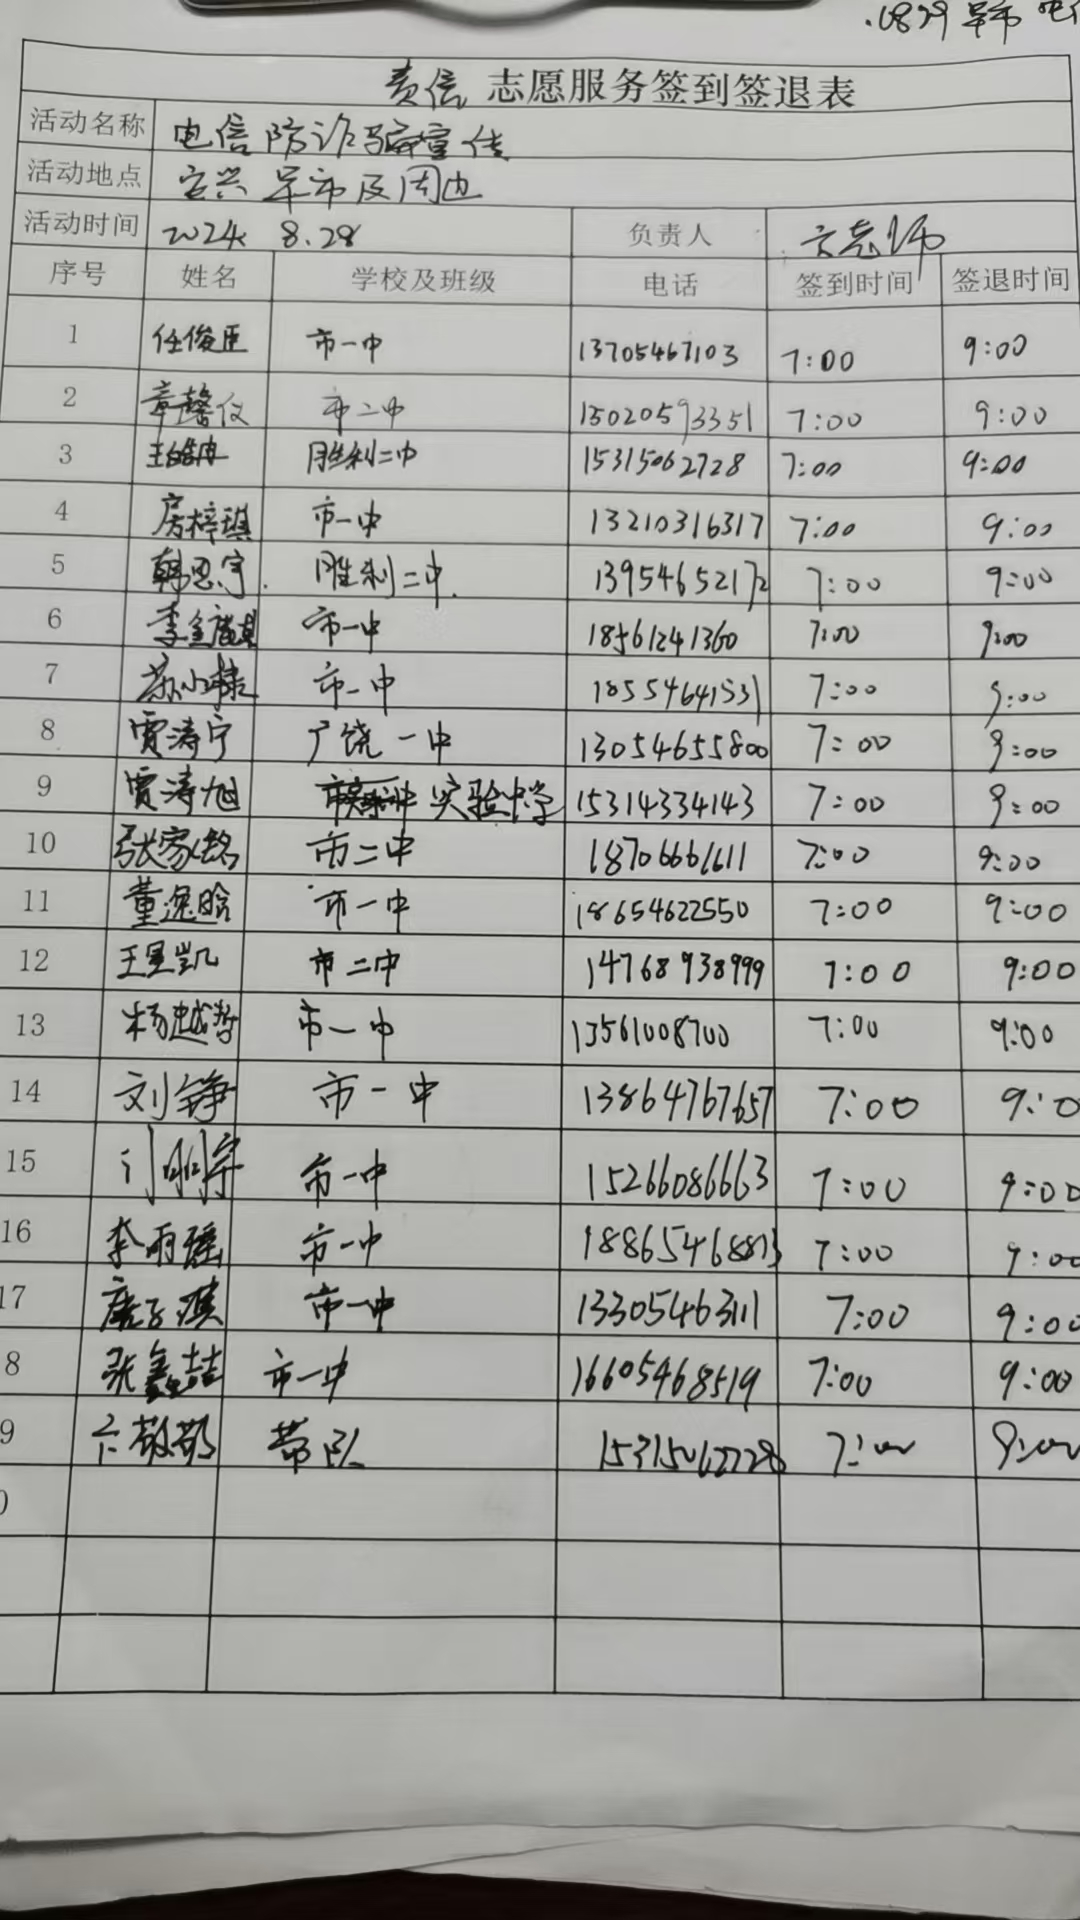 .0829 早市 电
责信 志愿服务签到签退表
活动名称 电信防诈骗宣传
活动地点 宜兴早市及周边
活动时间 2024 8.28 负责人
序号 姓名 学校及班级 电话 签到时间 签退时间
1 任俊臣 市一中 13705467103 7:00 9:00
2 章馨仪 市二中 15020593351 7:00 9:00
3 胜利二中 15315062728 7:00 9:00
4 房梓琪 市一中 13210316317 7:00 9:00
5 韩思宇. 胜利二中. 13954652172 7:00 9:00
6 市一中 18561241360 7:00 9:00
7 苏小棣 市一中 7:00 9:00
8 贾涛宁 广饶一中 13054655800 7:00 9:00
9 贾涛旭 实验中学 15314334143 7:00 9:00
10 张家铭 市二中 18706661611 7:00 9:00
11 董逸晗 市一中 18654622550 7:00 9:00
12 王星凯 市二中 14768938999 7:00 9:00
13 杨越哲 市一中 13561008700 7:00 9:00
14 刘铮 市一中 13864767657 7:00 9:0
15 市一中 15266086663 7:00 9:00
16 李雨瑶 市一中 18865468813 7:00 9:00
17 唐子琪 市一中 13305463111 7:00 9:00
8 张鑫喆 市一中 16605468519 7:00 9:00
9 卞敬敬 带队 15315062728 7:00 9:00
0